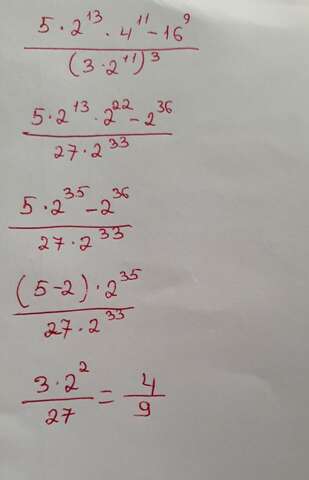 5 · 2¹³ · 4¹¹ − 16⁹
(3 · 2¹¹)³
5 · 2¹³ · 2²² − 2³⁶
27 · 2³³
5 · 2³⁵ − 2³⁶
27 · 2³³
(5 − 2) · 2³⁵
27 · 2³³
3 · 2² = 4
27 9